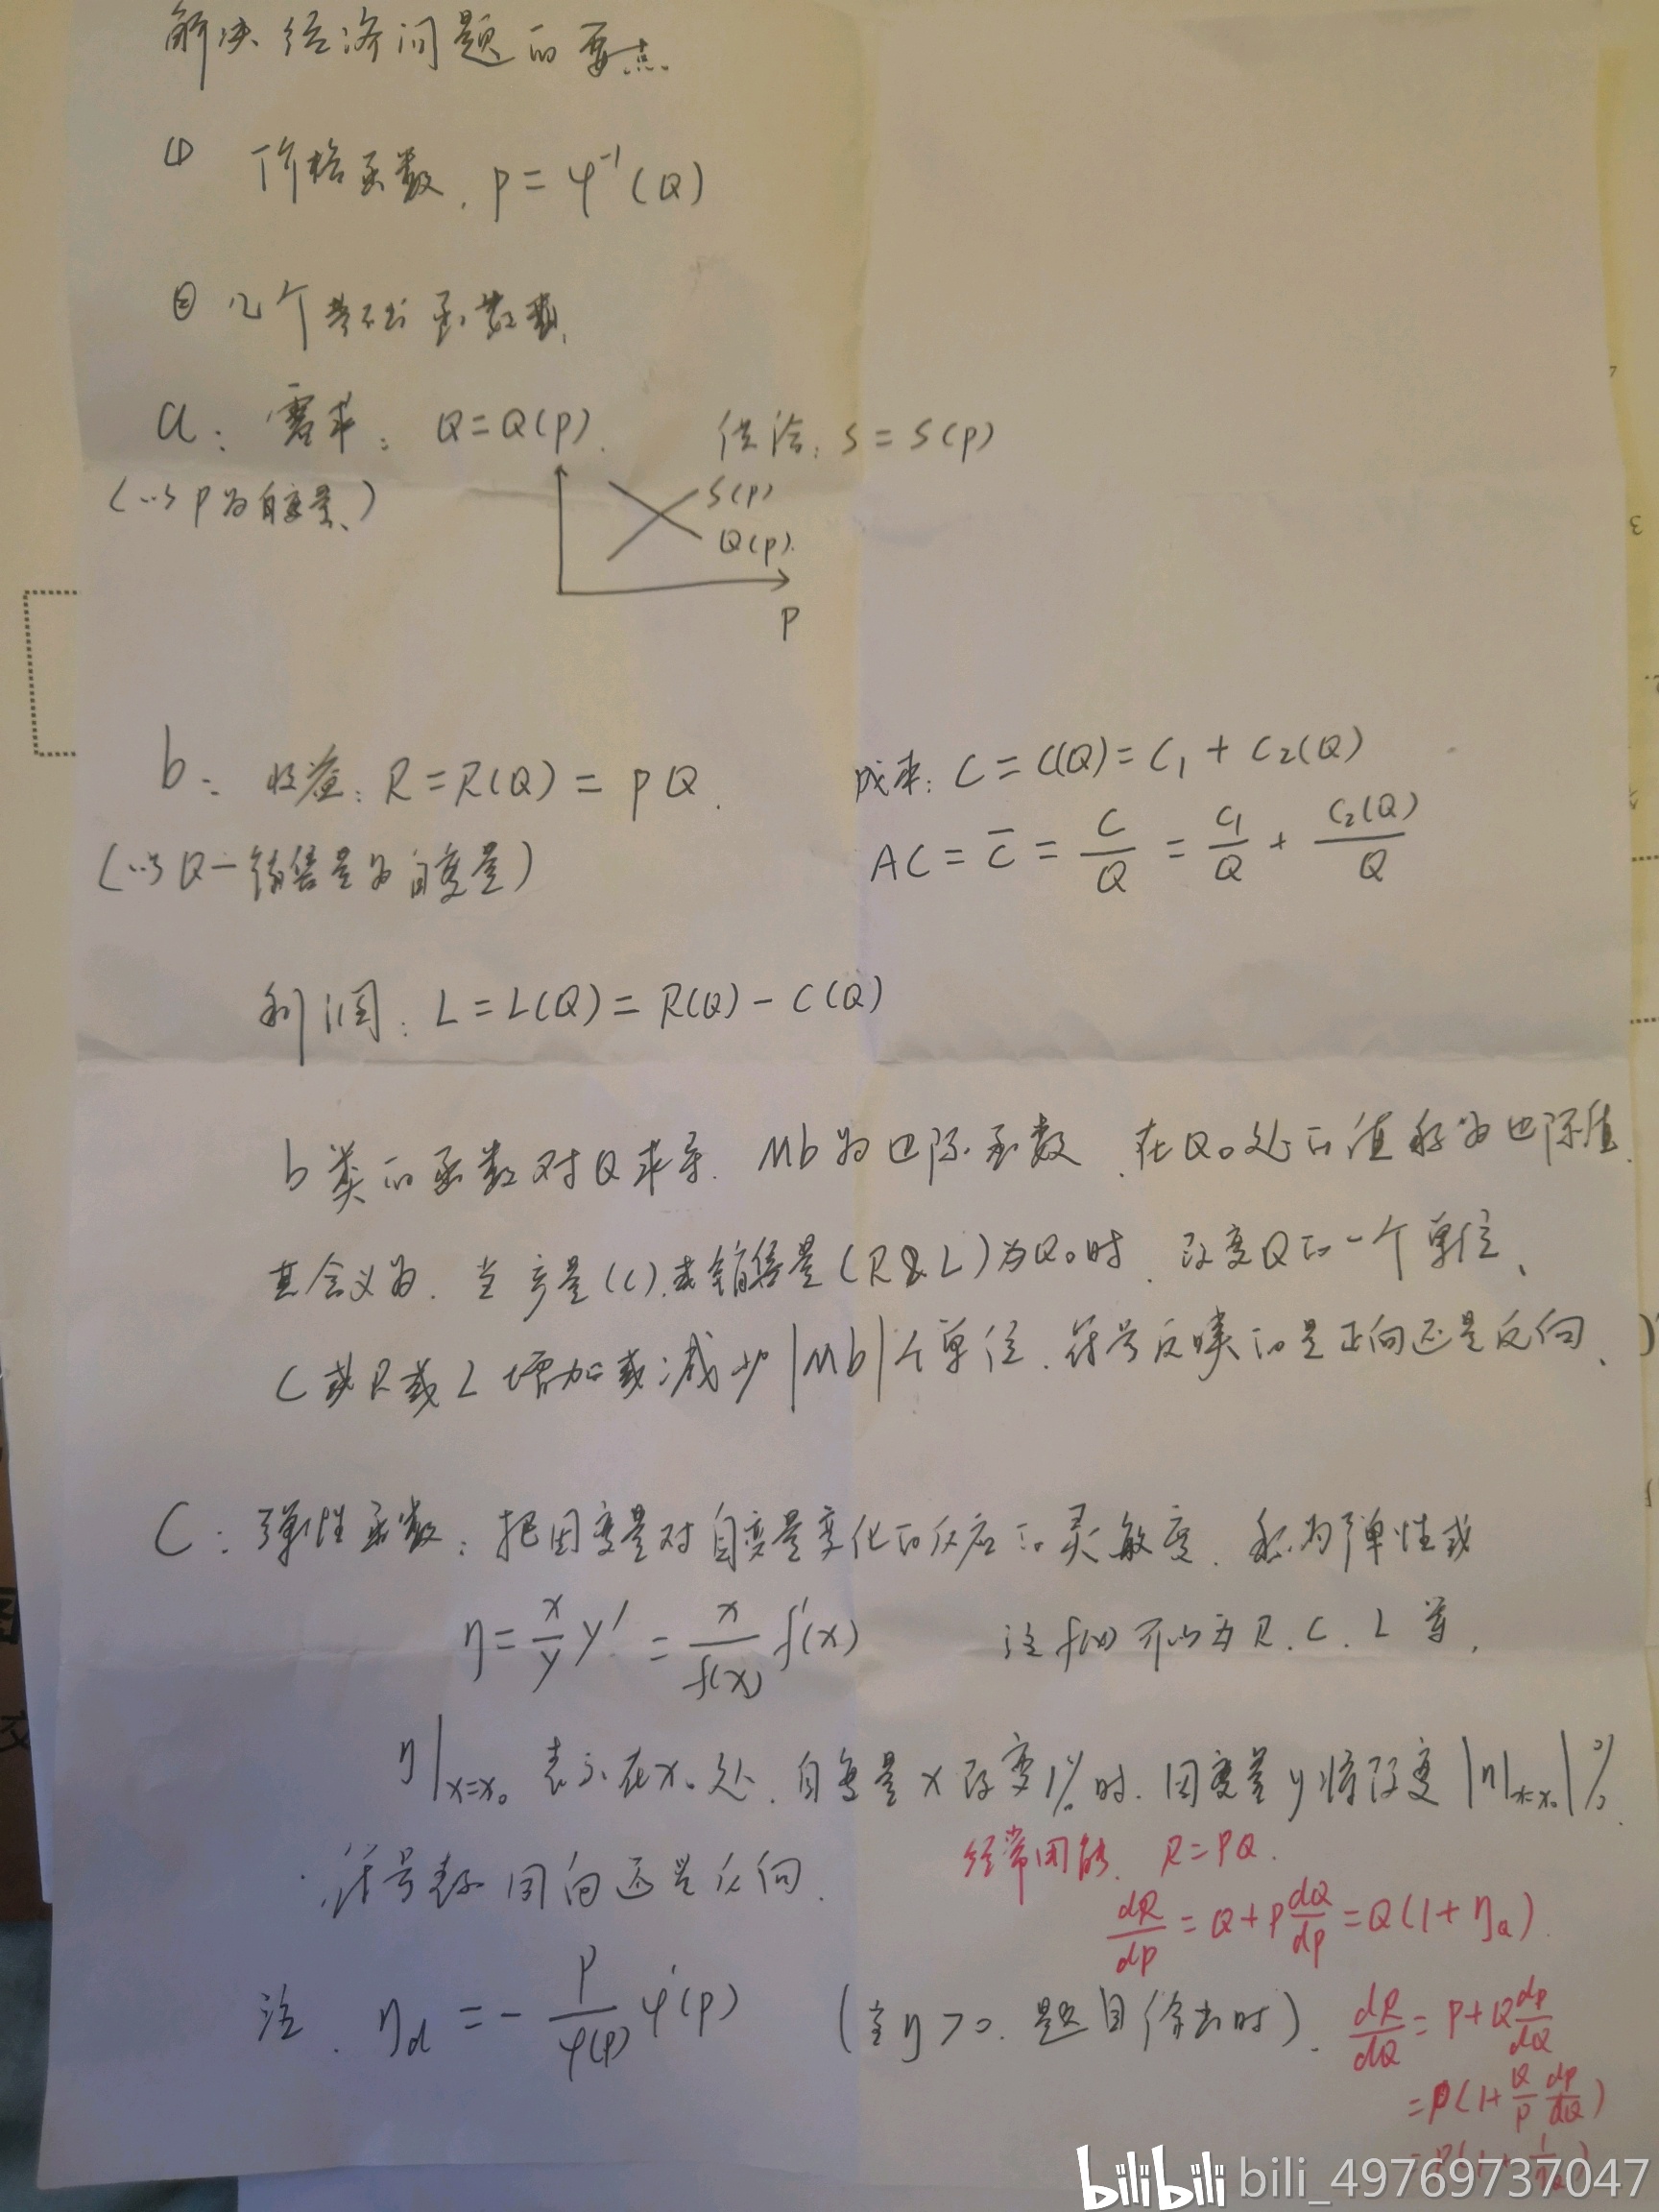 解决经济问题的要点
① 价格函数. p = φ⁻¹(Q)
② 几个 函数
a: 需求: Q=Q(p). 供给: S = S(p)
(以P为自变量)
S(p)
Q(p).
P
b: 收益: R = R(Q) = pQ. 成本: C = C(Q) = C₁ + C₂(Q)
(以Q—销售量为自变量) AC = C̄ = C/Q = C₁/Q + C₂(Q)/Q
利润: L = L(Q) = R(Q) - C(Q)
b类的函数对Q求导. Mb为边际函数. 在Q₀处的值称为边际值.
其含义为. 当产量(C).或销售量(R&L)为Q₀时. 改变Q的一个单位、
C或R或L增加或减少|Mb|个单位. 符号反映的是正向还是反向.
C: 弹性函数: 把因变量对自变量变化的反应的灵敏度. 称为弹性或
η = x/y y′ = x/f(x) f′(x) 注 f(x) 可以为 R. C. L 等.
η|x=x₀ 表示在x₀处. 自变量x改变1%时. 因变量y将改变 |η|x=x₀|%.
符号表示同向还是反向.
经常用的. R=PQ.
dR/dp = Q + P dQ/dp = Q(1+ηa).
注. ηd = - P/φ(P) φ′(p) (当η>0. 题目给出时). dR/dQ = P+Q dp/dQ
= P(1+ Q/P dp/dQ)